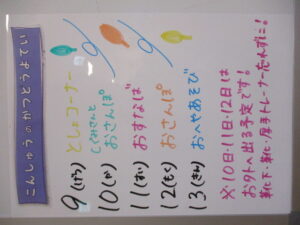 こんしゅうのかつどうよてい
9(げつ) としょコーナー
しくみさんと
10(か) おさんぽ
11(すい) おすなば
12(もく) おさんぽ
13(きん) おへやあそび
※10日・11日・12日は
お外へ出る予定です!
靴下・靴・厚手トレーナー忘れずに!